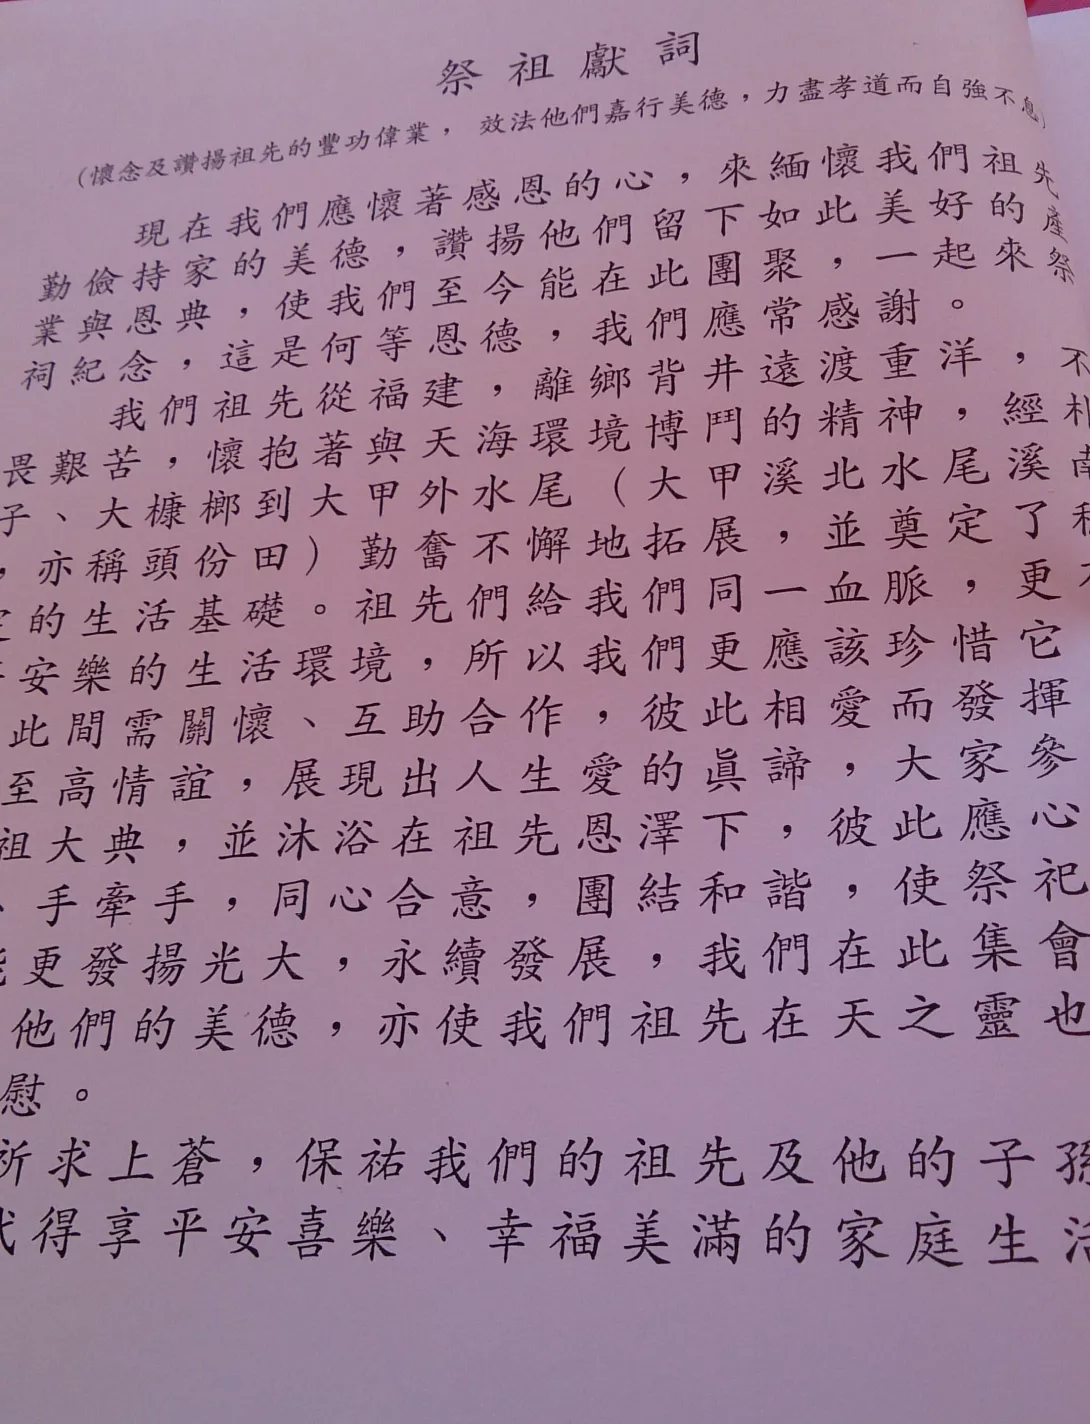 祭祖獻詞
(懷念及讚揚祖先的豐功偉業，效法他們嘉行美德，力盡孝道而自強不息)
現在我們應懷著感恩的心，來緬懷我們祖先
勤儉持家的美德，讚揚他們留下如此美好的產
業與恩典，使我們至今能在此團聚，一起來祭
祠紀念，這是何等恩德，我們應常感謝。
我們祖先從福建，離鄉背井遠渡重洋，不
畏艱苦，懷抱著與天海環境博鬥的精神，經朴
子、大槺榔到大甲外水尾（大甲溪北水尾溪南
，亦稱頭份田）勤奮不懈地拓展，並奠定了
定的生活基礎。祖先們給我們同一血脈，更
安樂的生活環境，所以我們更應該珍惜它
此間需關懷、互助合作，彼此相愛而發揮
至高情誼，展現出人生愛的眞諦，大家參
祖大典，並沐浴在祖先恩澤下，彼此應心
、手牽手，同心合意，團結和諧，使祭祀
能更發揚光大，永續發展，我們在此集會
他們的美德，亦使我們祖先在天之靈也
慰。
祈求上蒼，保祐我們的祖先及他的子孫
代得享平安喜樂、幸福美滿的家庭生活